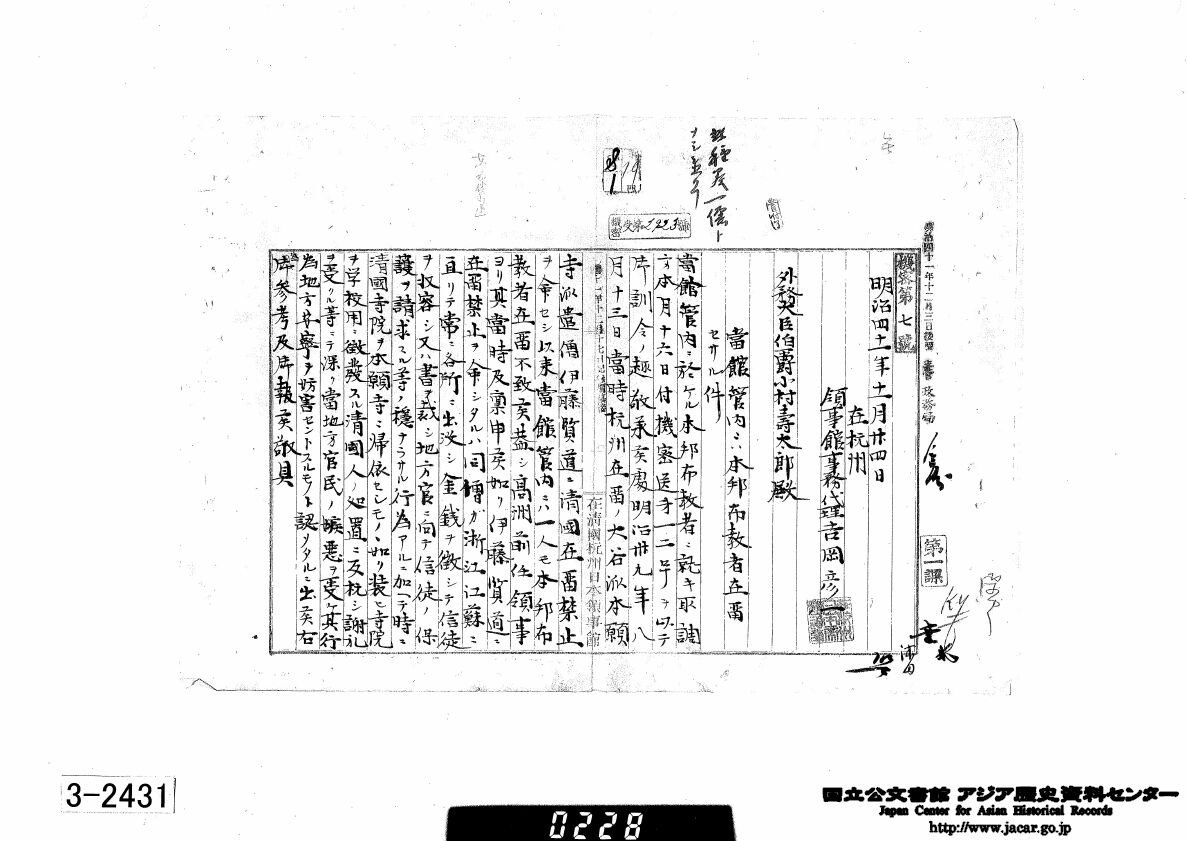 明治四十一年十二月三日接受 主管 政務局
第一課
機密第七號
明治四十一年十一月廿四日
在杭州
領事館事務代理吉岡彦一
外務大臣伯爵小村壽太郎殿
當館管内ニハ本邦布教者在留
セサル件
當館管内ニ於ケル本邦布教者ニ就キ取調
方本月十六日付機密送第一二号ヲ以テ
御訓令ノ趣敬承候處明治卅九年八
月十三日當時杭州在留ノ大谷派本願
寺派遣僧伊藤賢道ニ清國在留禁止
ヲ命セシ以来當館管内ニハ一人モ本邦布
教者在留不致候蓋シ高洲前任領事
ヨリ其當時及稟申候如ク伊藤賢道ニ
在留禁止ヲ命シタルハ同僧ガ浙江江蘇ニ
亘リテ常ニ各所ニ出没シ金銭ヲ徴シテ信徒
ヲ収容シ又ハ書ヲ裁シ地方官ニ向テ信徒ノ保
護ヲ請求スル等ノ穏ナラサル行為アルニ加ヘテ時ニ
清國寺院ヲ本願寺ニ帰依セシモノヽ如ク装ヒ寺院
ヲ学校用ニ徴発スル清國人ノ処置ニ反抗シ謝礼
ヲ受クル等ニテ深ク當地方官民ノ嫉悪ヲ受ケ其行
為地方安寧ヲ妨害セントスルモノト認メタルニ出候右
御参考及御報候敬具
在清國杭州日本領事館
機密 受第3223號
3-2431
0228
国立公文書館 アジア歴史資料センター
Japan Center for Asian Historical Records
http://www.jacar.go.jp